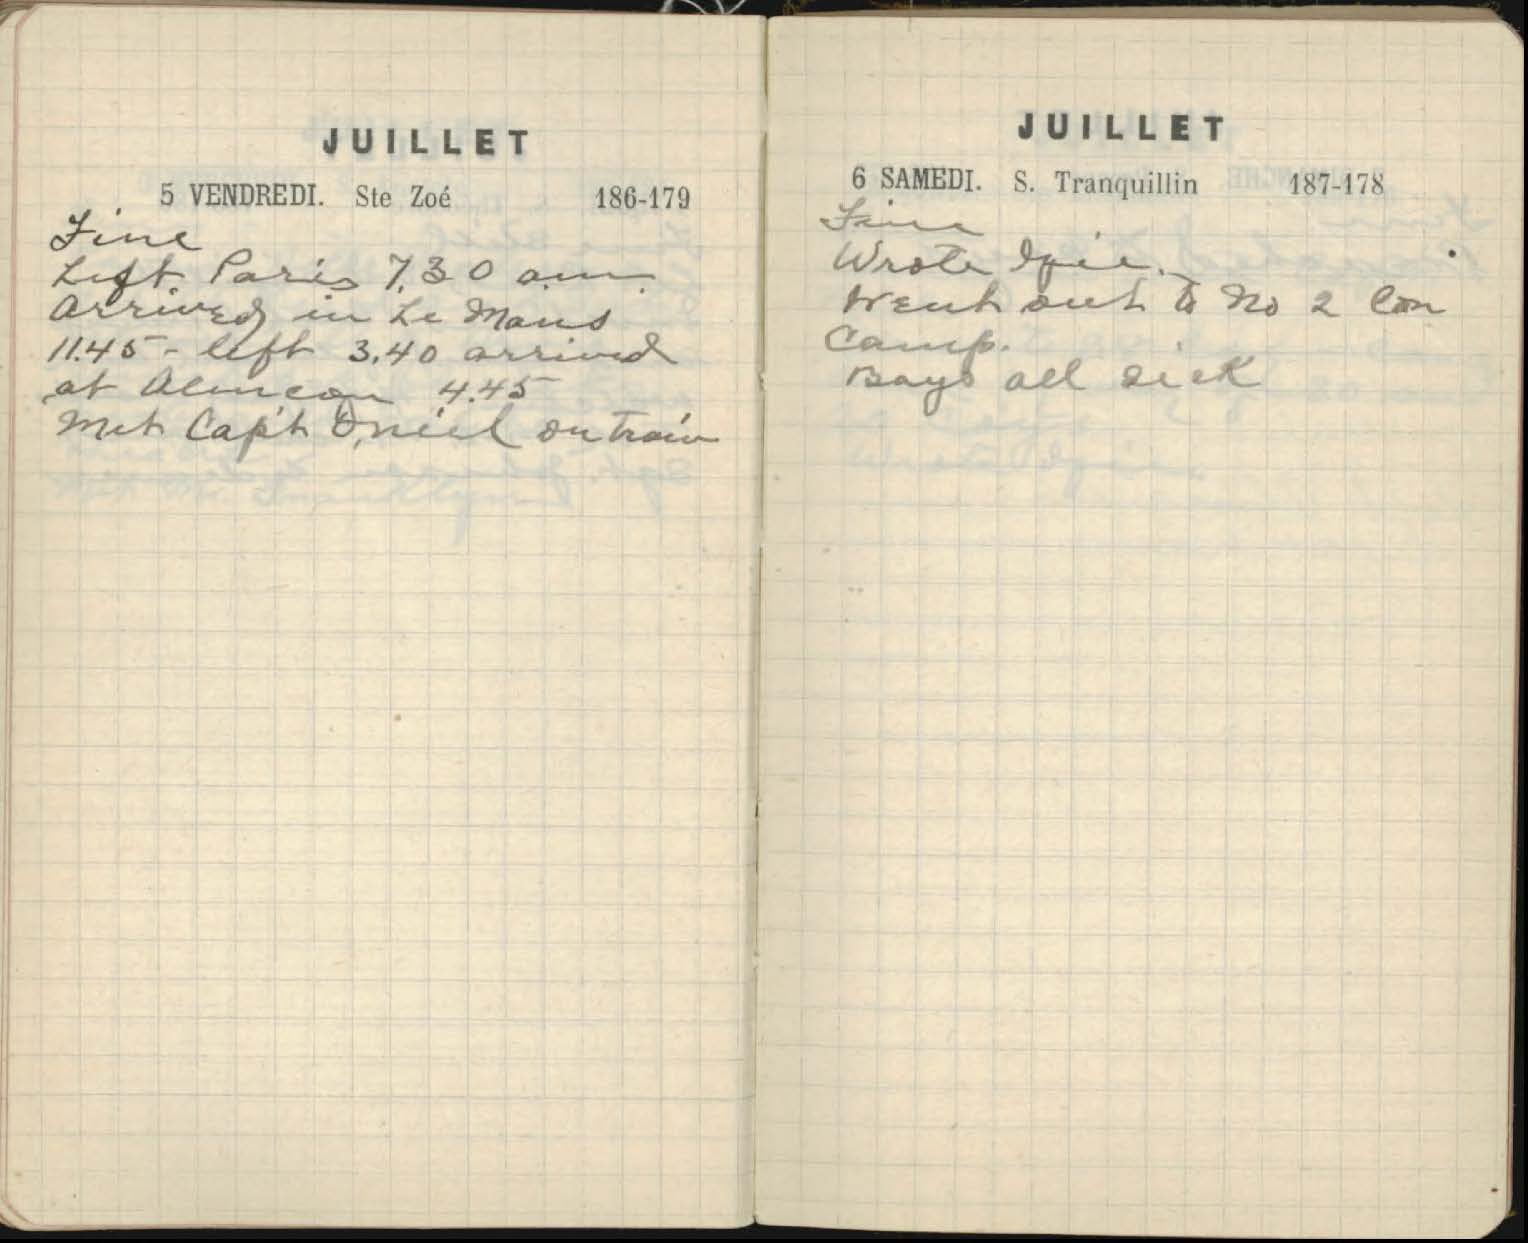 JUILLET
5 VENDREDI. Ste Zoé 186-179
Fine
Left Paris 7.30 a.m.
Arrived in Le Mans
11.45 - left 3.40 arrived
at Alencon 4.45
Met Capt O'niel on train
JUILLET
6 SAMEDI. S. Tranquillin 187-178
Fine
Wrote
Went out to No 2 Con
Camp.
Boys all sick